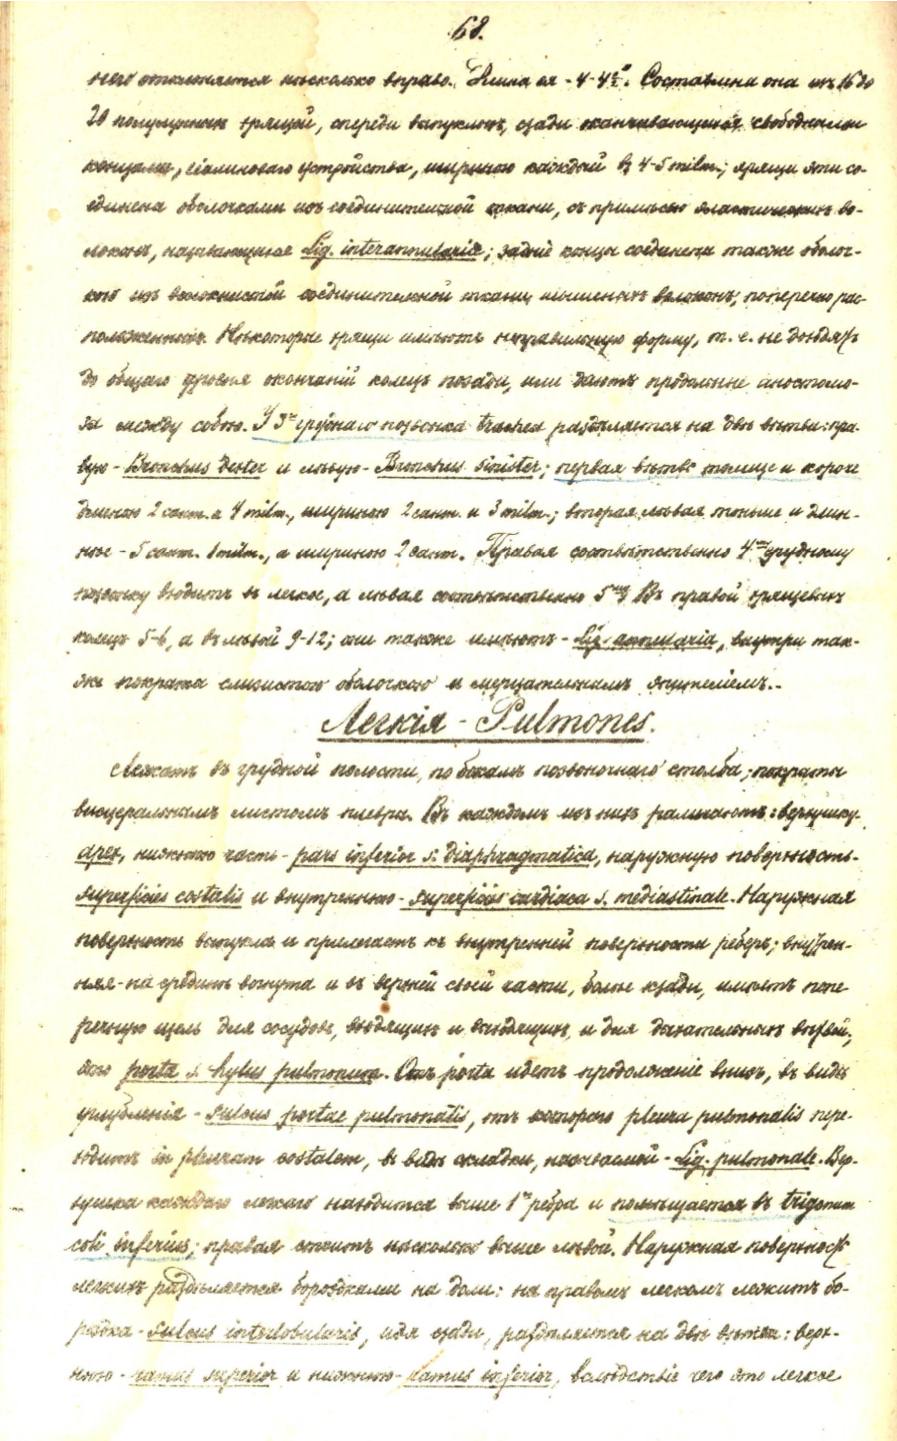 68.
него отклоняется нѣсколько вправо. Длина ея - 4-4½". Составлена она изъ 16 до
20 полулунныхъ хрящей, спереди выпуклыхъ, сзади оканчивающихся свободными
концами, гіалиноваго устройства, шириною каждый въ 4-5 milm.; хрящи эти со-
единены оболочками изъ соединительной ткани, съ примѣсью эластическихъ во-
локонъ, называющіеся Lig. interannularia; задніе концы соединены также оболоч-
кою изъ волокнистой соединительной ткани, мышечныхъ волоконъ, поперечно рас-
положенныхъ. Нѣкоторые хрящи имѣютъ неправильную форму, т. е. не доходятъ
до общаго уровня окончаній колецъ позади, или даютъ продольные анастомо-
зы между собою. У 3го грудного позвонка trachea раздѣляется на двѣ вѣтви: пра-
вую - Bronchus dexter и лѣвую - Bronchus sinister; первая вѣтвь толще и короче
длиною 2 сант. и 4 milm., шириною 2 сант. и 3 milm.; вторая лѣвая тоньше и длин-
нѣе - 5 сант. 1 milm., а шириною 2 сант. Правая соотвѣтственно 4му грудному
позвонку входитъ въ легкое, а лѣвая соотвѣтственно 5му. Въ правой хрящевыхъ
колецъ 5-6, а въ лѣвой 9-12; они также имѣютъ - Lig. annularia, внутри так-
же покрыта слизистою оболочкою и мерцательнымъ эпителіемъ.-
Легкія - Pulmones.
Лежатъ въ грудной полости, по бокамъ позвоночнаго столба; покрыты
висцеральнымъ листомъ плевры. Въ каждомъ изъ нихъ различаютъ: верхушку-
apex, нижнюю часть - pars inferior s. diaphragmatica, наружную поверхность-
superficies costalis и внутреннюю - superficies cardiaca s. mediastinale. Наружная
поверхность выпукла и прилегаетъ къ внутренней поверхности реберъ; внутрен-
няя - на срединѣ вогнута и въ верхней своей части, болѣе кзади, имѣетъ попе
речную щель для сосудовъ, входящихъ и выходящихъ, и для дыхательныхъ вѣтвей,
это porta s. hylus pulmonum. Отъ porta идетъ продолженіе внизъ, въ видѣ
углубленія - sulcus portae pulmonalis, отъ котораго pleura pulmonalis пере-
ходитъ in pleuram costalem, въ видѣ складки, называемой - Lig. pulmonale. Вер-
хушка каждаго легкаго находится выше 1го ребра и помѣщается въ trigonum
coli inferius; правая стоитъ нѣсколько выше лѣвой. Наружная поверхность
легкихъ раздѣляется бороздками на доли: на правомъ легкомъ лежитъ бо-
роздка - sulcus interlobularis, идя сзади, раздѣляется на двѣ вѣтви: верх-
нюю - ramus superior и нижнюю - ramus inferior, вслѣдствіе чего это легкое